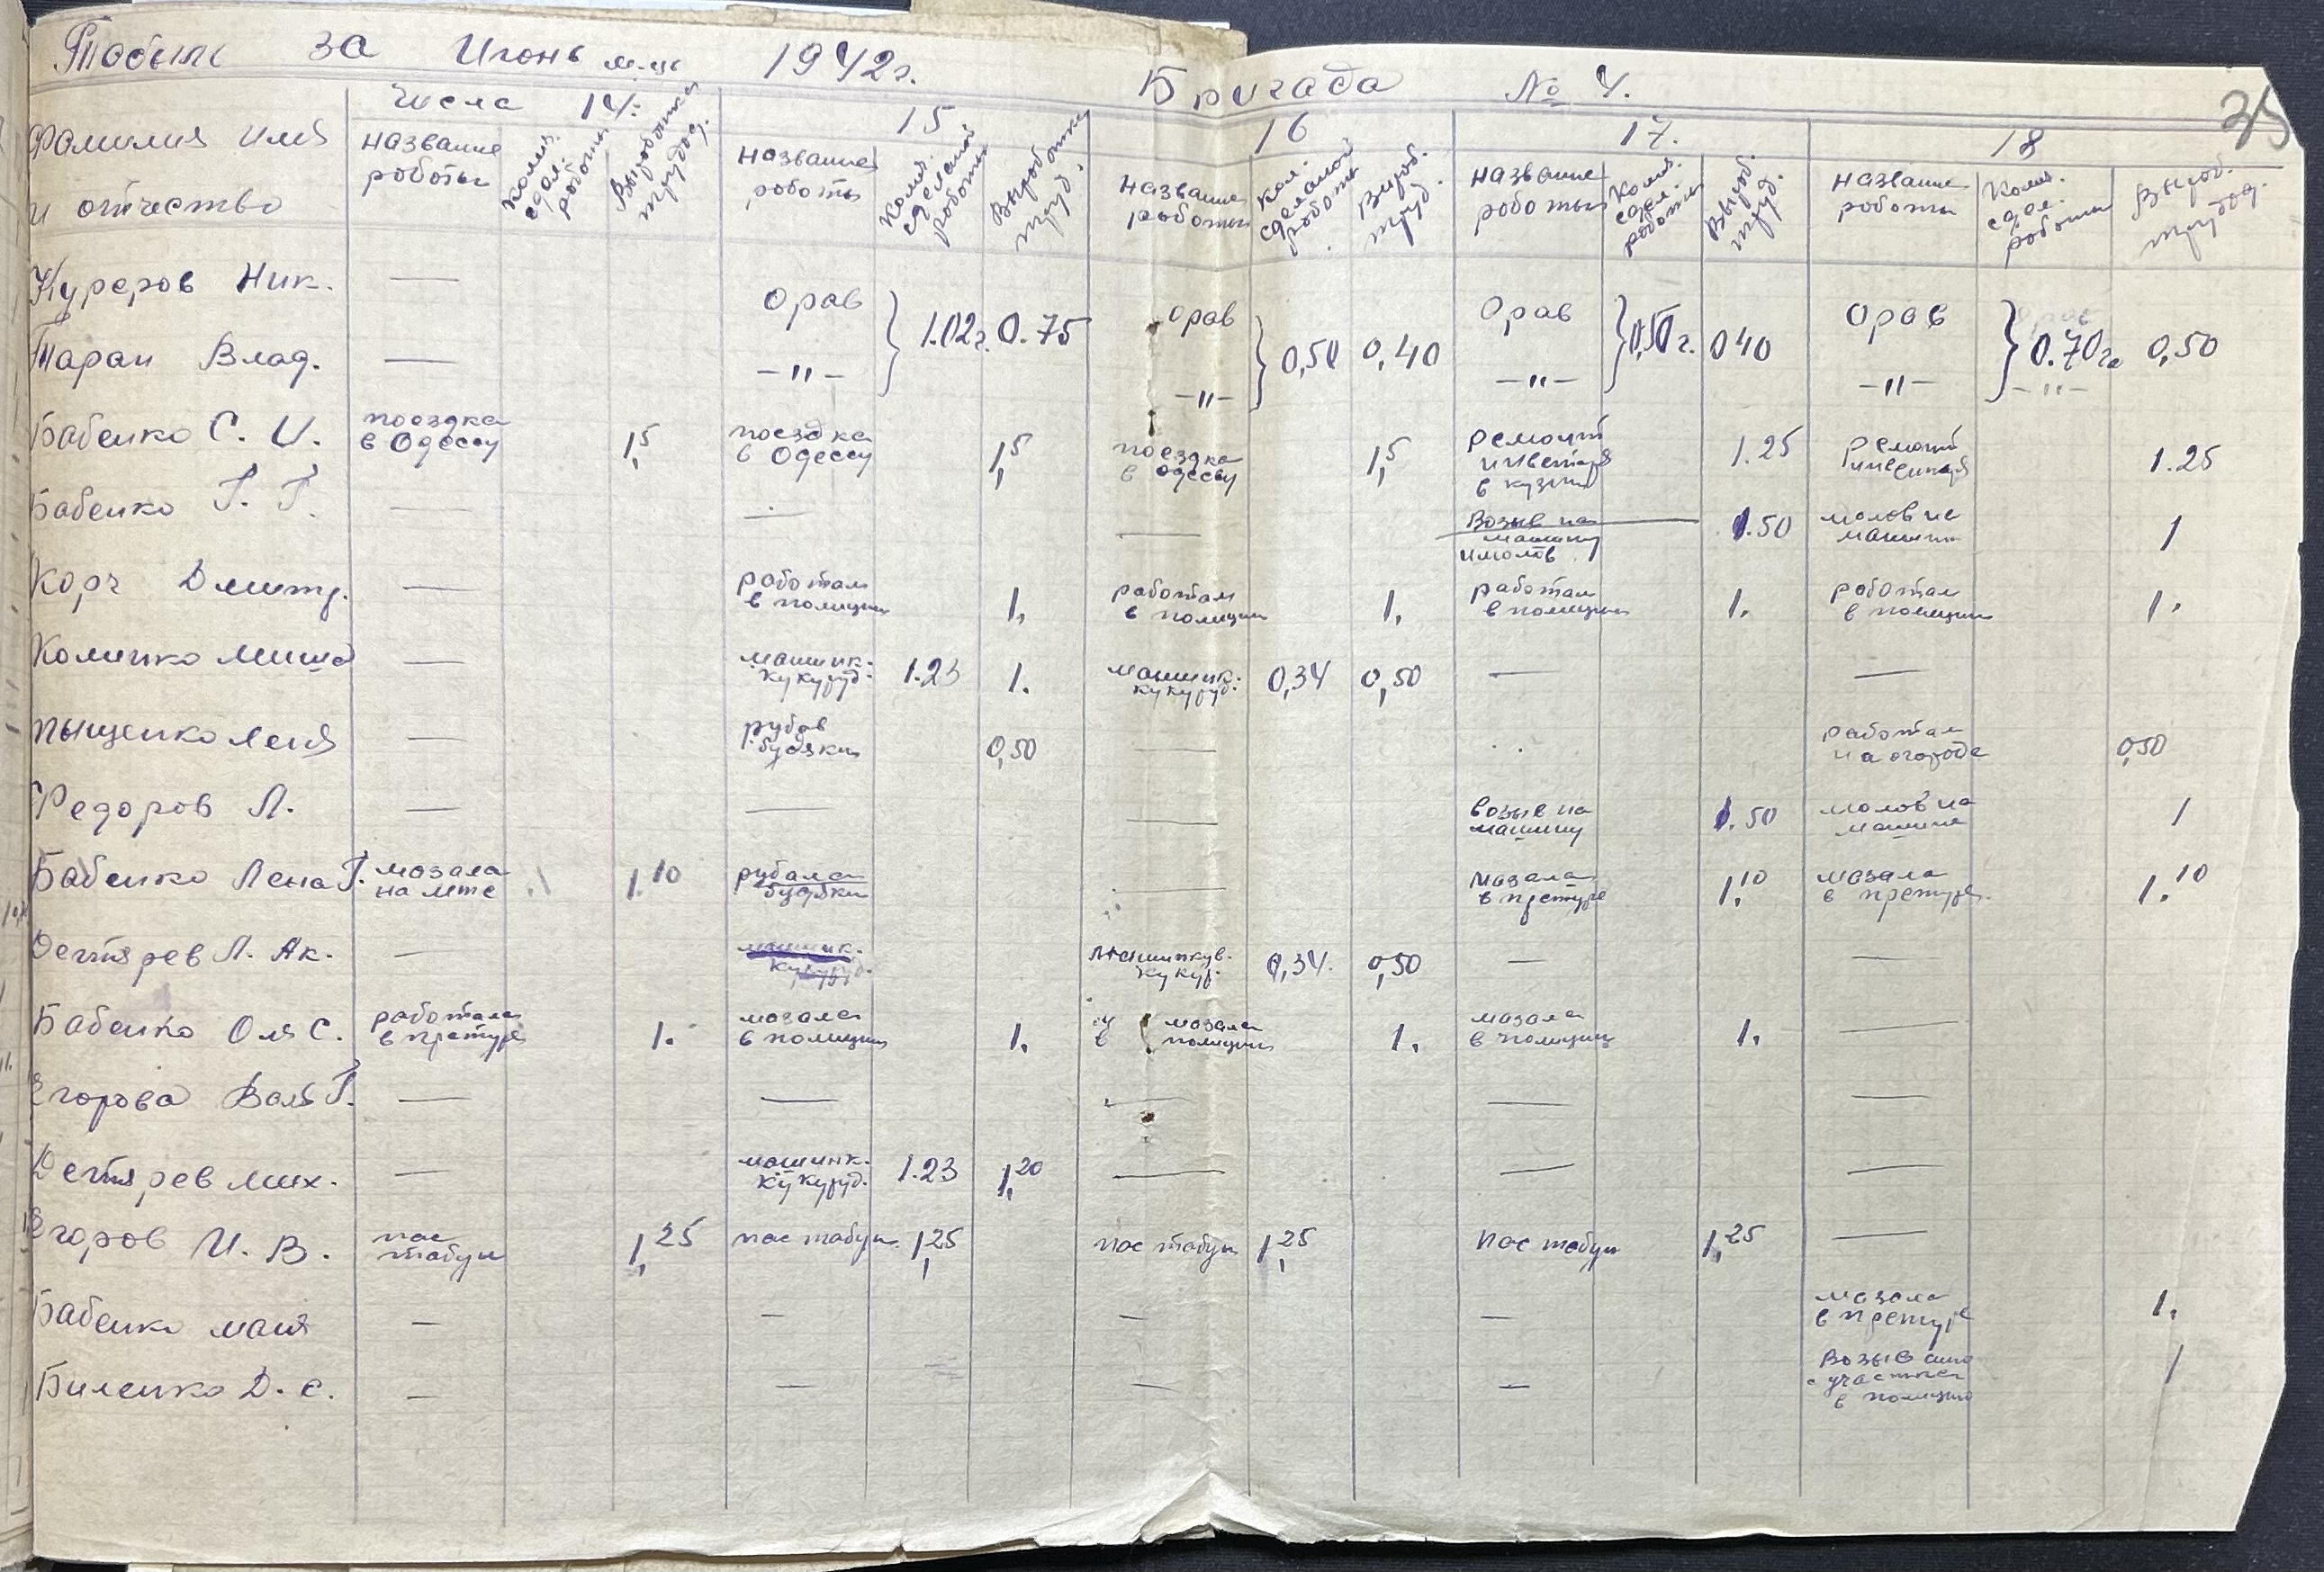 Табель за Июнь м-ць 1942г. Бригада № 4.
35
Числа 14. 15 16 17. 18
Фамилия Имя и отчество
название роботы Колич. сдел. роботы Выработка трудод. название роботы Колич. сделаной роботы Выработка труд. название роботы Кол. сделаной роботы Выраб. труд. название роботы Колич. сдел. роботы Выроб. труд. название роботы Колич. сдел. роботы Выроб. трудод.
Ник. — Орав Орав Орав Орав
} 1.02г. 0.75 } 0,50 0,40 } 0,50г. 040 } 0.70га 0,50
Таран Влад. — -"- -"- -"- -"-
Бабенко С. И. поездка в Одессу 1,5 поездка в Одессу 1,5 поездка в Одессу 1,5 ремонт инвентаря в кузни 1.25 ремонт инвентаря 1.25
Бабенко Г. Г. — — — Возыв на машину и молов. 1.50 молов на машин 1
Корч Дмитр. — работал в полиции 1. работал в полиции 1. работал в полиции 1. роботал в полиции 1.
Миша — машинк. кукуруд. 1.23 1. машинк. кукуруд. 0,34 0,50 — —
Леня — рубав будяки 0,50 — работал на огороде 0,50
Федоров Л. — — — возыв на машину 1.50 молов на машине 1
Бабенко Лена Г. мазала на мтс 1.10 рубала будяки — мазала в претуре 1,10 мазала в претуре. 1.10
Дегтярев Л. Ак. — машинк. кукуруд. машинкув. кукур. 0,34. 0,50 — —
Бабенко Оля С. работала в претуре 1. мазала в полиции 1. мазала в полиции 1. мазала в полиции 1. —
Егорова Валя Г. — — — — —
Дегтярев Мих. — машинк. кукуруд. 1.23 1,20 — — —
Егоров И. В. пас табун 1,25 пас табун 1,25 пас табун 1,25 пас табун 1,25 —
Бабенко Маня — — — — мазала в претуре 1.
Биленко Д. С. — — — — возыв сино с участка в полицию 1